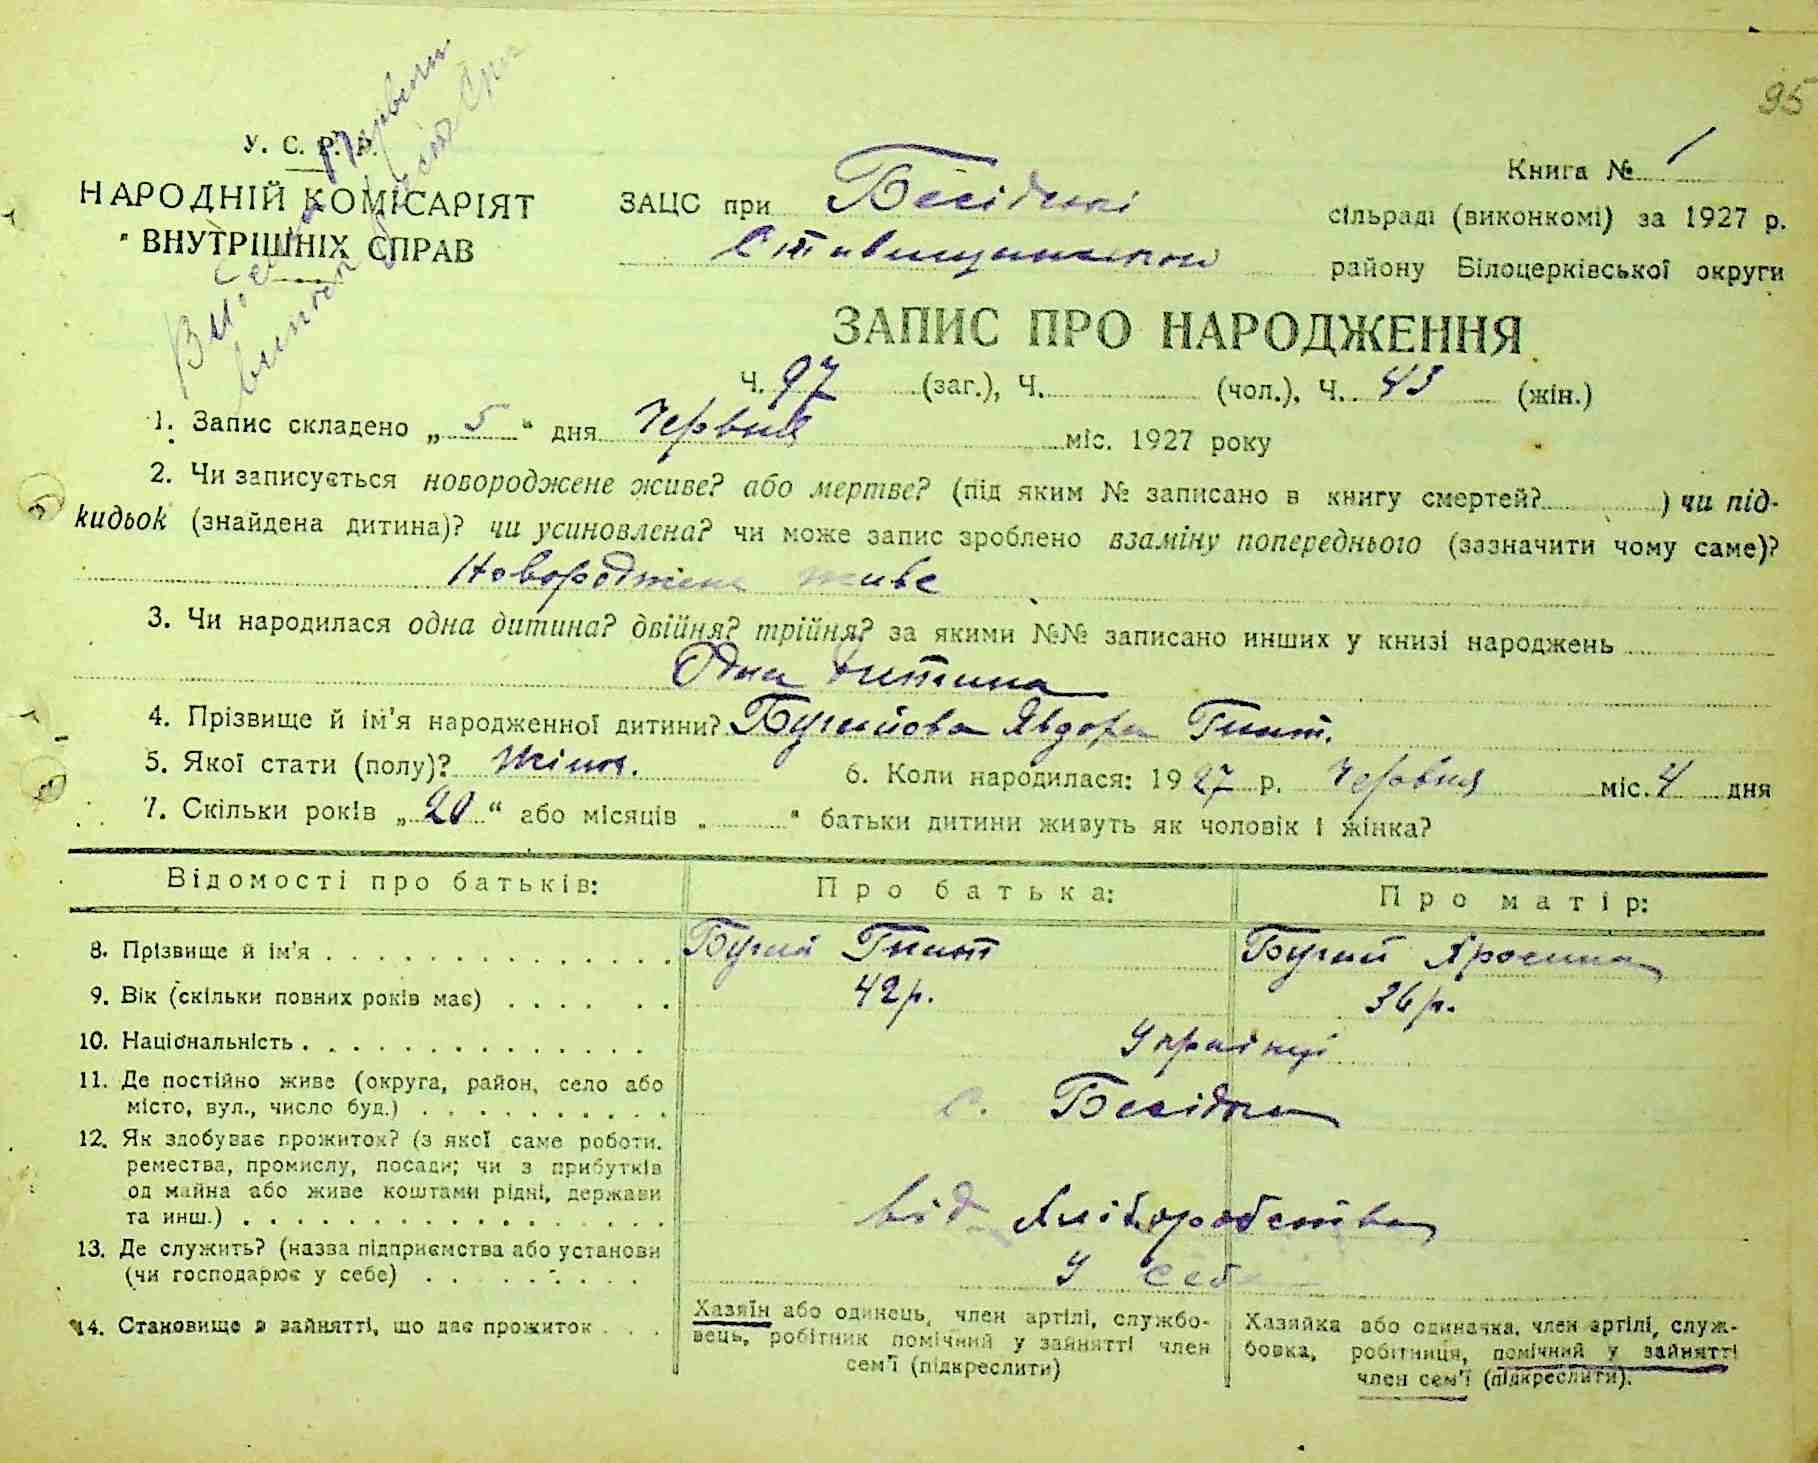 95
У. С. Р. Р.
НАРОДНІЙ КОМІСАРІЯТ
ВНУТРІШНІХ СПРАВ
Книга № 1
ЗАЦС при Бесідській сільраді (виконкомі) за 1927 р.
Ставищанського району Білоцерківської округи
ЗАПИС ПРО НАРОДЖЕННЯ
Ч. 97 (заг.), Ч. (чол.), Ч. 43 (жін.)
1. Запис складено „ 5 “ дня Червня міс. 1927 року
2. Чи записується новороджене живе? або мертве? (під яким № записано в книгу смертей? ) чи під-
кидьок (знайдена дитина)? чи усиновлена? чи може запис зроблено взаміну попереднього (зазначити чому саме)?
Новороджене живе
3. Чи народилася одна дитина? двійня? трійня? за якими №№ записано инших у книзі народжень
Одна дитина
4. Прізвище й ім'я народженної дитини? Явдоха Гнат.
5. Якої стати (полу)? Жіноч. 6. Коли народилася: 1927 р. Червня міс. 4 дня
7. Скільки років „ 20 “ або місяців „ “ батьки дитини живуть як чоловік і жінка?
Відомості про батьків: Про батька: Про матір:
8. Прізвище й ім'я Бугай Гнат Бугай Яросина
9. Вік (скільки повних років має) 42 р. 36 р.
10. Національність Українці
11. Де постійно живе (округа, район, село або
місто, вул., число буд.) с. Бесідка
12. Як здобуває прожиток? (з якої саме роботи.
ремества, промислу, посади; чи з прибутків
од майна або живе коштами рідні, держави
та инш.) від хліборобства
13. Де служить? (назва підприємства або установи
(чи господарює у себе) у себе
14. Становище в зайнятті, що дає прожиток
Хазяїн або одинець, член артілі, службо-
вець, робітник помічний у зайнятті член
сем'ї (підкреслити)
Хазяйка або одиначка, член артілі, служ-
бовка, робітниця, помічний у зайнятті
член сем'ї (підкреслити).